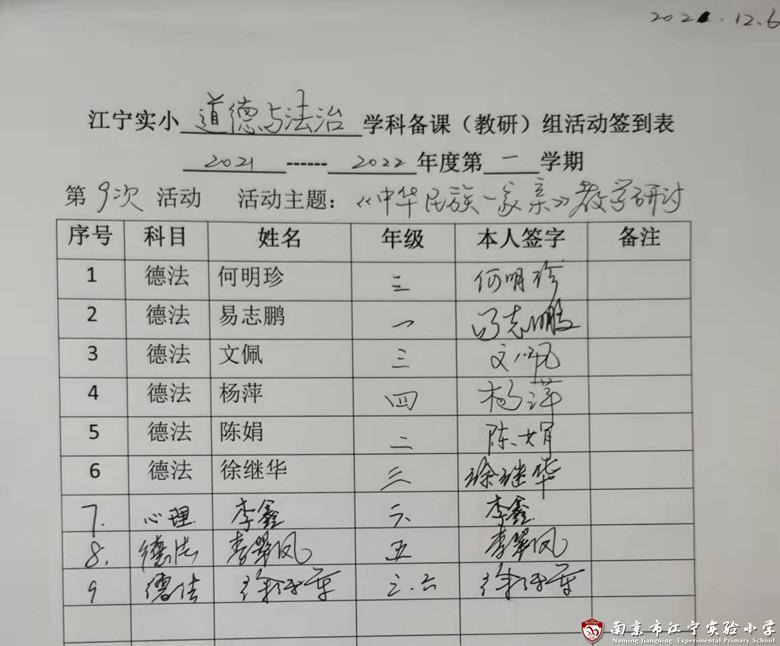 2021.12.6
江宁实小 道德与法治 学科备课（教研）组活动签到表
2021 ------ 2022 年度第 一 学期
第 9次 活动 活动主题：《中华民族一家亲》教学研讨
序号 科目 姓名 年级 本人签字 备注
1 德法 何明珍 三 何明珍
2 德法 易志鹏 一 易志鹏
3 德法 文佩 三 文佩
4 德法 杨萍 四 杨萍
5 德法 陈娟 二 陈娟
6 德法 徐继华 三 徐继华
7. 心理 李鑫 六 李鑫
8. 德法 李翠凤 五 李翠凤
9 德法 三.六
南京市江宁实验小学
Nanjing Jiangning Experimental Primary School